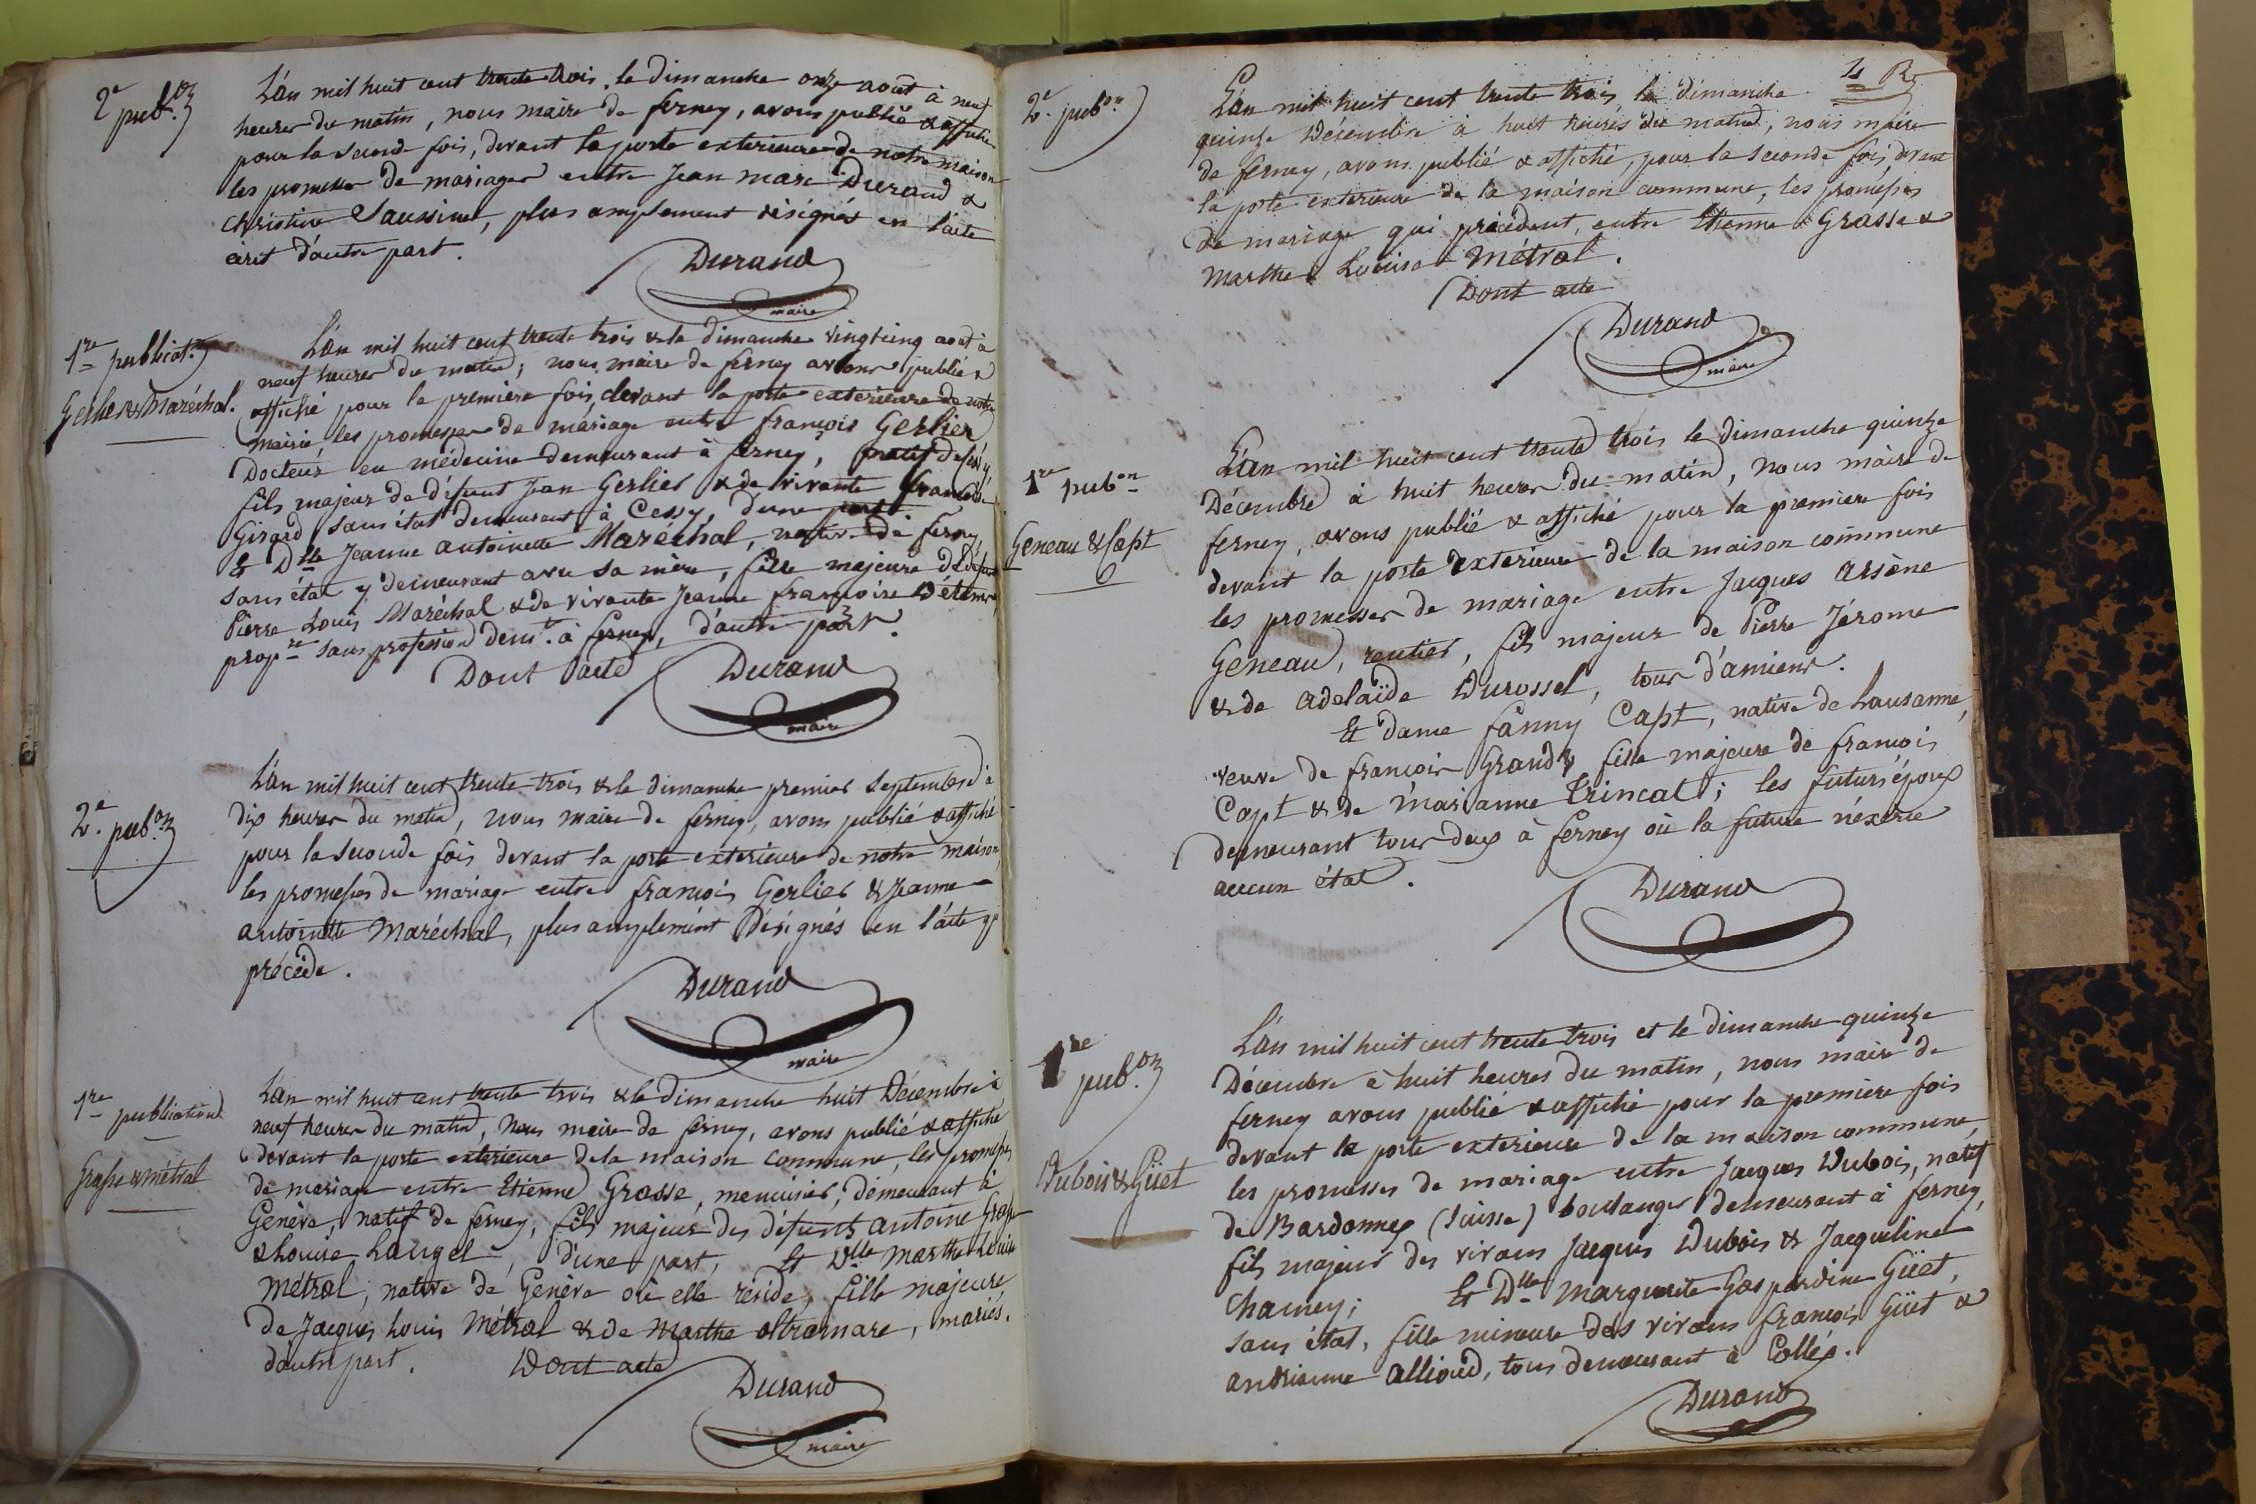 2e pub.on
L'an mil huit cent trente trois, le dimanche onze août à neuf
heures du matin, nous maire de ferney, avons publié & affiché
pour la seconde fois, devant la porte exterieure de notre maison
les promesses de mariages entre Jean marc Durand &
Christine Saussine, plus amplement désignés en l'acte
écrit d'autre part.
Durand
maire
1re publicat.on
Gerlier & Maréchal.
L'an mil huit cent trente trois & le dimanche vingt cinq août à
neuf heures du matin; nous maire de ferney avons publié &
affiché pour la première fois, devant la porte exterieure de notre
mairie, les promesses de mariage entre françois Gerlier
Docteur en médecine demeurant à ferney, natif de Cessy,
fils majeur de défunt Jean Gerlier & de vivante françoise
Girard, sans état demeurant à Cessy, d'une part
Et Dlle Jeanne antoinette Maréchal, native de ferney,
sans état y demeurant avec sa mère, fille majeure de défunt
Pierre Louis Maréchal & de vivante Jeanne françoise
propre sans profession demt. à ferney, d'autre part.
Dont acte
Durand
maire
2e. pub.on
L'an mil huit cent trente trois & le dimanche premier Septembre à
dix heures du matin, nous maire de ferney, avons publié & affiché
pour la seconde fois, devant la porte exterieure de notre maison,
les promesses de mariage entre françois Gerlier & Jeanne
antoinette Maréchal, plus amplement Désignés en l'acte qui
précède.
Durand
maire
1re publication
Grasse & métral
L'an mil huit cent trente trois & le dimanche huit Décembre à
neuf heures du matin, Nous maire de ferney, avons publié & affiché
devant la porte extérieure de la maison commune, les promesses
de mariage entre Etienne Grasse, menuisier, demeurant à
Genève, natif de ferney, fils majeur des défunts antoine Grasse
& Louise Laugel, d'une part, Et Dlle Marthe Louise
Métral, native de Genève où elle réside, fille majeure
de Jacques Louis Métral & de Marthe oltramare, mariés.
d'autre part. Dont acte
Durand
maire
4 R
2e. pub.on
L'an mil huit cent trente trois, le dimanche
quinze Décembre à huit heures du matin, nous maire
de ferney, avons publié & affiché, pour la seconde fois devant
la porte exterieure de la maison commune, les promesses
de mariage qui précèdent, entre Etienne Grasse &
Marthe Louise Métral.
Dont acte
Durand
maire
1re pubon
Geneau & Capt
L'an mil huit cent trente trois le dimanche quinze
Décembre à huit heures du matin, nous maire de
ferney, avons publié & affiché pour la premiere fois
devant la porte exterieure de la maison commune
les promesses de mariage entre Jacques arsène
Geneau, rentier, fils majeur de Pierre Jérome
& de adelaïde Durossel, tous d'amiens.
Et dame fanny Capt, native de Lausanne,
veuve de françois Grand, fille majeure de françois
Capt & de marianne Trincat; les futurs époux
demeurant tous deux à ferney où la future n'exerce
aucun état.
Durand
1re pub.on
Dubois & Güet
L'an mil huit cent trente trois et le dimanche quinze
Décembre à huit heures du matin, nous maire de
ferney avons publié & affiché pour la premiere fois
devant la porte exterieure de la maison commune,
les promesses de mariage entre Jacques Dubois, natif
de Bardonnex (Suisse) boulanger demeurant à ferney,
fils majeur des vivans Jacques Dubois & Jacqueline
Chamey; Et Dlle marguerite Gaspardine Güet,
sans état, fille mineure des vivans françois Güet &
andrianne Allioud, tous demeurant à Collex.
Durand